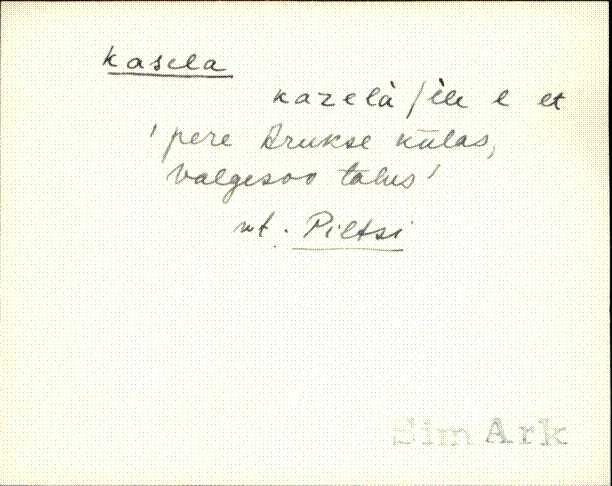 kasela
kazelà /ile e et
'pere Arukse külas,
Valgesoo talus'
vt. Piltsi
Sim Ark